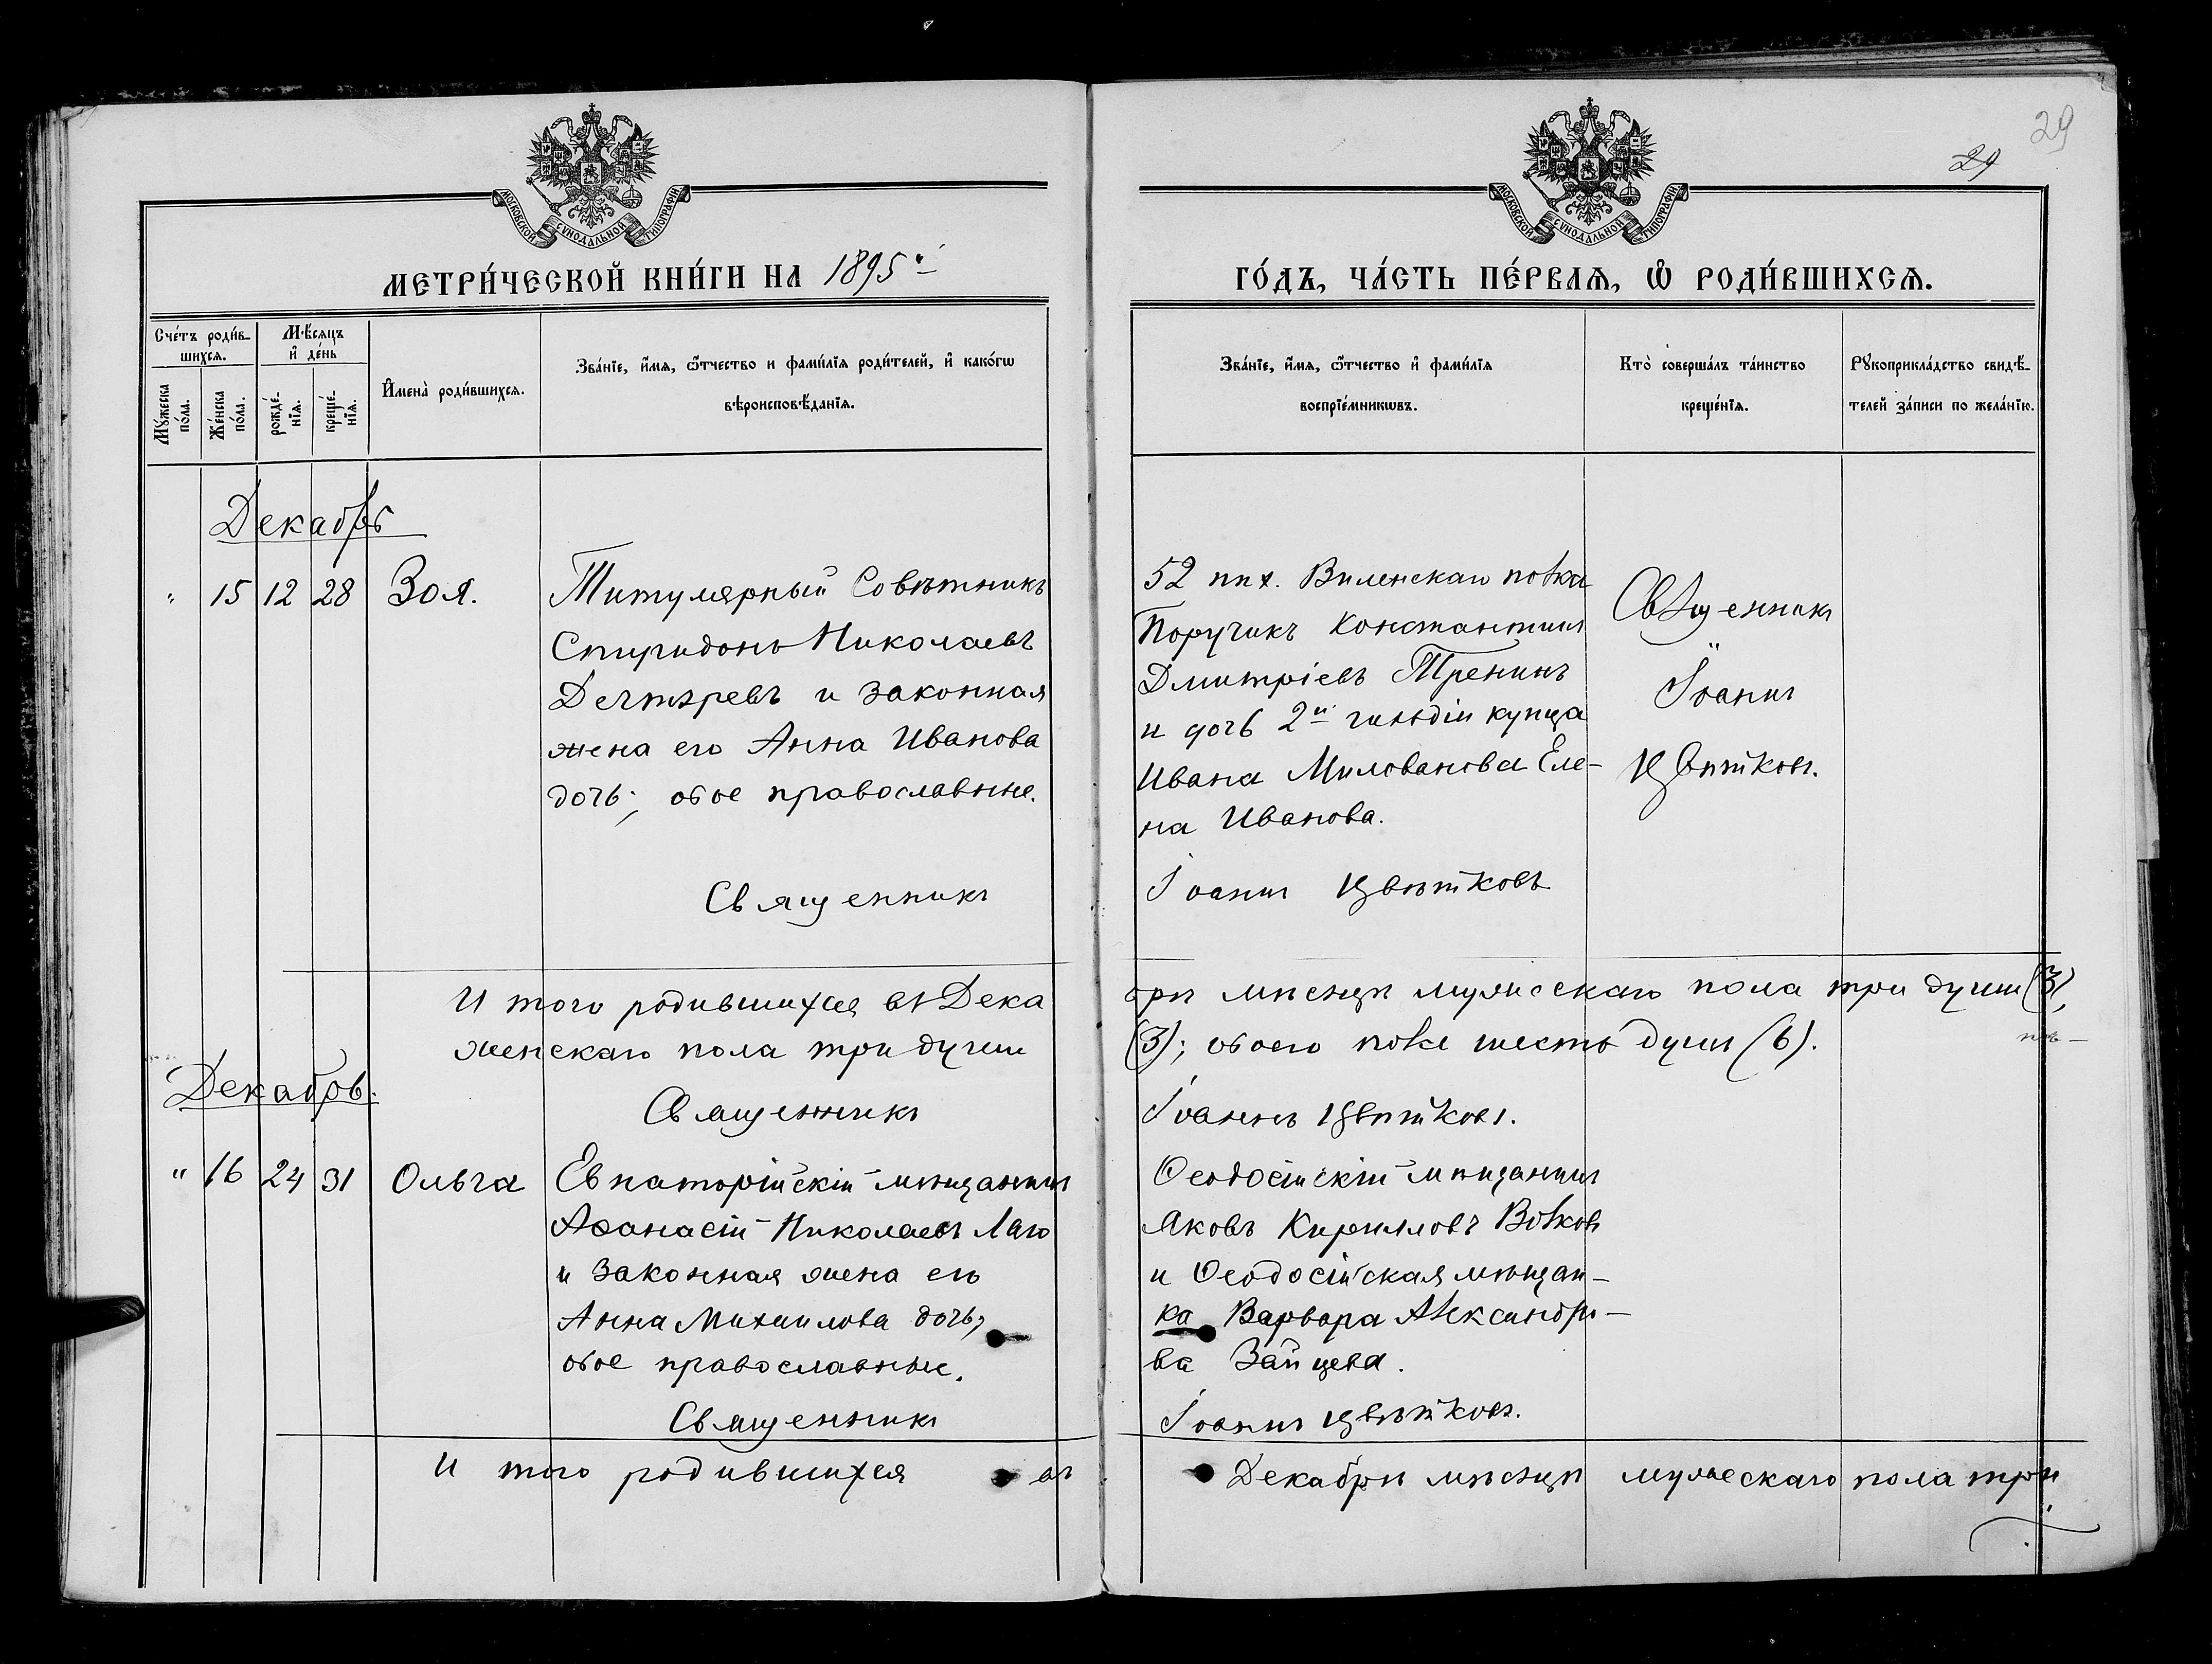 29
29
МОСКОВСКОЙ СѴНОДАЛЬНОЙ ТИПОГРАФІИ
МЕТРИ́ЧЕСКОЙ КНИ́ГИ НА 1895й
Сче́тъ роди́в-
шихсѧ.
Мѣ́сяцъ
и҆ де́нь
Мꙋ́жеска
по́ла.
Же́нска
по́ла.
рожде́-
нїѧ.
креще́-
нїѧ.
И҆мена̀ роди́вшихсѧ.
Зва́нїе, и҆́мѧ, ѻ҆́тчество и фами́лїѧ роди́телей, и҆ како́гѡ
вѣроисповѣ́данїѧ.
Декабрь
" 15 12 28 Зоя.
Титулярный Совѣтникъ
Спиридонъ Николаевъ
и законная
жена его Анна Иванова
дочь; обое православные.
Священникъ
И того родившихся въ Дека
женскаго пола три души
Декабрь.
Священникъ
" 16 24 31 Ольга
Евпаторійскій мѣщанинъ
Аѳанасій Николаевъ
и законная жена его
Анна Михаилова дочь;
обое православные.
Священникъ
И того родившихся въ
МОСКОВСКОЙ СѴНОДАЛЬНОЙ ТИПОГРАФІИ
ГО́ДЪ, ЧА́СТЬ ПЕ́РВАѦ, Ѡ҆ РОДИ́ВШИХСѦ.
Зва́нїе, и҆́мѧ, ѻ҆́тчество и҆ фами́лїѧ
воспрїе́мникѡвъ.
Кто̀ соверша́лъ та́инство
креще́нїѧ.
Рꙋкоприкла́дство свидѣ́-
телей за́писи по жела́нїю.
52 пѣх. Виленскаго полка
Поручикъ Константинъ
Дмитріевъ Тренинъ
и дочь 2й гильдіи купца
Ивана Милованова Еле-
на Иванова.
Священникъ
Іоаннъ
Цвѣтковъ.
Іоаннъ Цвѣтковъ
брѣ мѣсяцѣ мужескаго пола три души (3),
(3); обоего пола шесть душъ (6).
Іоаннъ Цвѣтковъ.
Ѳеодосійскій мѣщанинъ
Яковъ Кирилловъ Волковъ
и Ѳеодосійская мѣщан-
ка Варвара Александро-
ва Зайцева.
Іоаннъ Цвѣтковъ.
Декабрѣ мѣсяцѣ мужескаго пола три